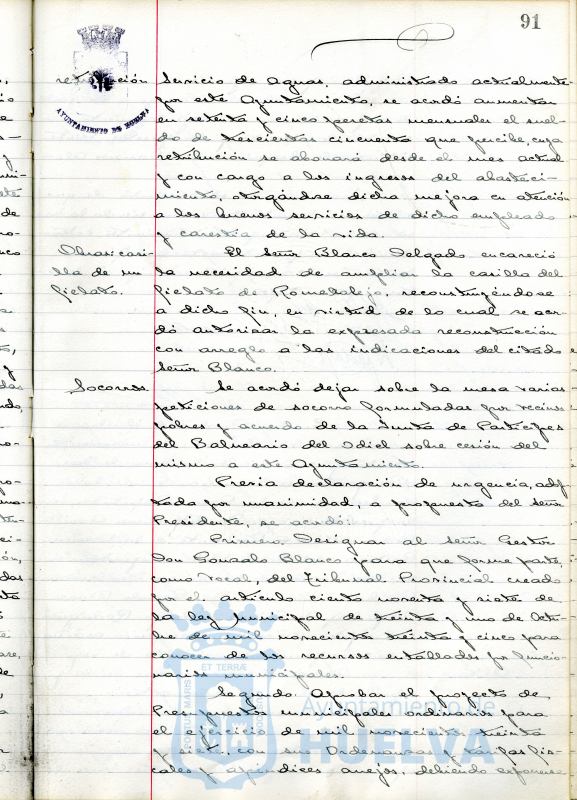 91
AYUNTAMIENTO DE HUELVA
retribución
servicio de aguas, administrado actualmente
por este Ayuntamiento, se acordó aumentar
en setenta y cinco pesetas mensuales el suel-
do de trescientas cincuenta que percibe, cuya
retribución se abonará desde el mes actual
y con cargo a los ingresos del abasteci-
miento, otorgándose dicha mejora en atención
a los buenos servicios de dicho empleado
y carestía de la vida.
Obras casi-
lla de un
fielato.
El Señor Blanco Delgado encareció
la necesidad de ampliar la casilla del
fielato de Romeralejo, reconstruyéndose
a dicho fin, en virtud de lo cual se acor-
dó autorizar la expresada reconstrucción
con arreglo a las indicaciones del citado
Señor Blanco.
Socorros.
Se acordó dejar sobre la mesa varias
peticiones de socorro formuladas por vecinos
pobres y acuerdo de la Junta de Partícipes
del Balneario del Odiel sobre cesión del
mismo a este Ayuntamiento.
Previa declaración de urgencia, adop
tada por unanimidad, a propuesta del Señor
Presidente, se acordó:
Primero. Designar al Señor Gestor
Don Gonzalo Blanco para que forme parte,
como vocal, del Tribunal Provincial creado
por el artículo ciento noventa y siete de
la ley Municipal de treinta y uno de Octu-
bre de mil novecientos treinta y cinco para
conocer de los recursos entablados por funcio-
narios municipales.
Segundo. Aprobar el proyecto de
Presupuestos municipales ordinario para
el ejercicio de mil novecientos treinta
y siete, con sus Ordenanzas y tarifas fis-
cales y apéndices anejos, debiendo exponerse
Ayuntamiento de
HUELVA
ET TERRÆ